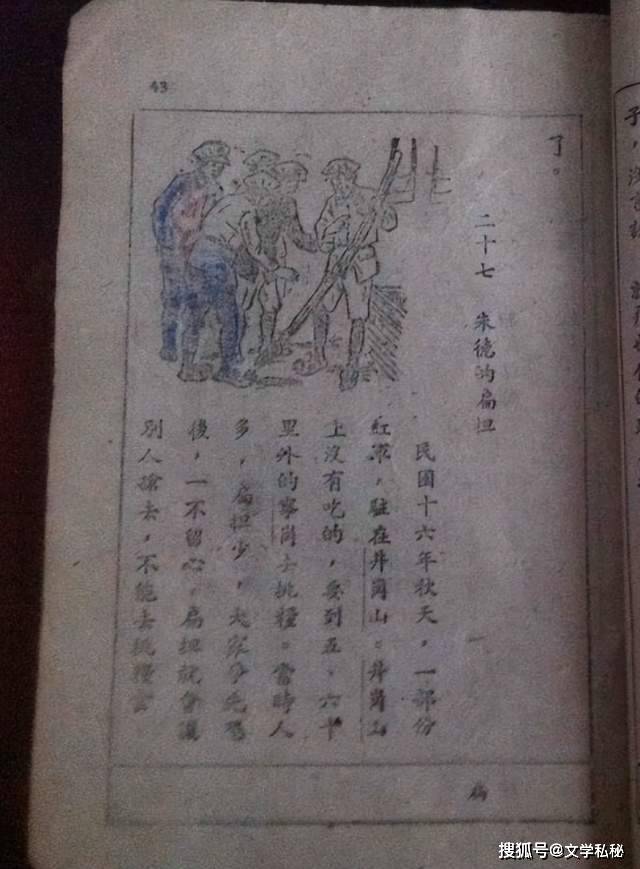 43
了。
二十七　朱德的扁担
民國十六年秋天，一部份
紅軍，駐在井岡山。井岡山
上沒有吃的，要到五、六十
里外的寧岡去挑糧。當時人
多，扁担少，大家爭先恐
後，一不留心，扁担就會讓
別人搶去，不能去挑糧
扁
搜狐号@文学私秘